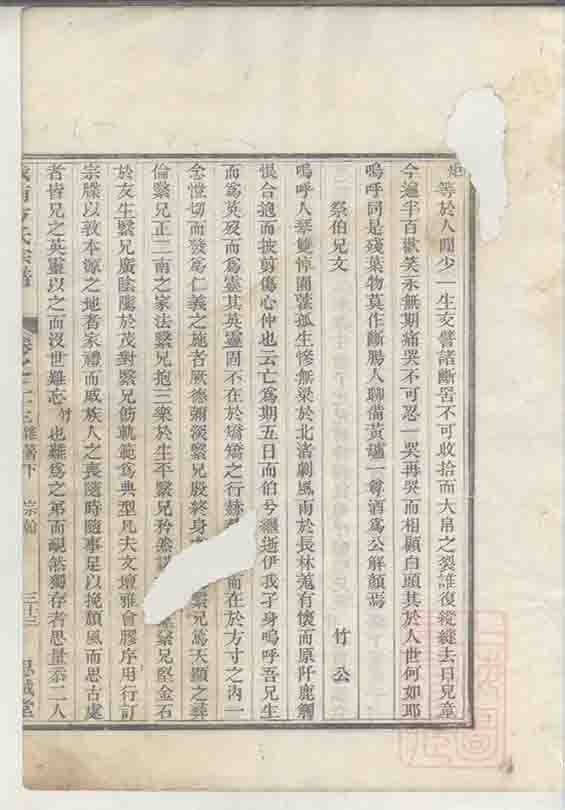 等於人間少一生交譬諸斷罟不可收拾而大帛之裂誰復縱縫去日兒童
今過半百歡笑永無期痛哭不可忍一哭再哭而相顧白頭其於人世何如耶
嗚呼同是殘葉物莫作斷腸人聊備黃壚一尊酒為公解顏焉
祭伯兄文 竹公
嗚呼人琴雙悼園蘀孤生慘無梁於北渚劇風雨於長林羗有懷而原阡鹿
悵合逈而披剪傷心仲也云亡為期五日而伯兮繼逝伊我孑身嗚呼吾兄生
而為英歿而為靈其英靈固不在於矯矯之行赫 而在於方寸之內一
念愷切而發為仁義之施者厥德彌淡繄兄殷終身 繄兄篤天顯之彝
倫繄兄正二南之家法繄兄抱三樂於生平繄兄矜 繄兄堅金石
於友生繄兄廣陰隲於茂對繄兄飭軌範為典型凡夫文壇雅會膠序用行訂
宗牒以敦本源之地耆家禮而戚族人之喪隨時隨事足以挽頹風而思古處
者皆兄之英靈以之而沒世難忘竹也難為之弟而靦然獨存者思量忝二人
氏宗譜 卷之二十三 雜著下 宗翰 三十三 思誠堂